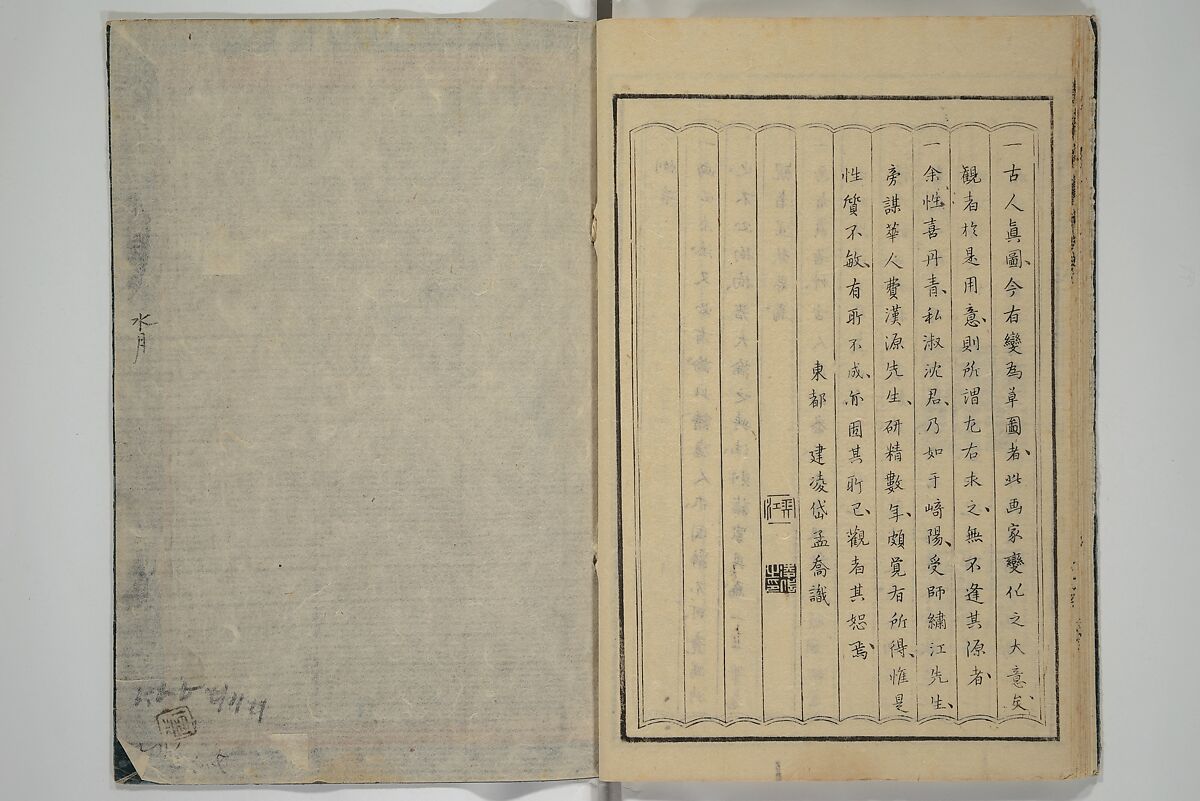 一古人眞圖、今有變為草圖者、此画家變化之大意矣、
觀者於是用意、則所謂左右求之、無不逢其源者、
一余性喜丹青、私淑沈君、乃如于﨑陽、受師繡江先生、
旁謀華人費漢源先生、研精數年、頗覚有所得、惟是
性質不敏、有所不成、亦固其所已、觀者其恕焉、
東都 建凌岱孟喬識
水月